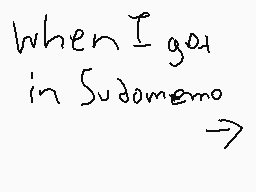 when I got
in Sudomemo
→